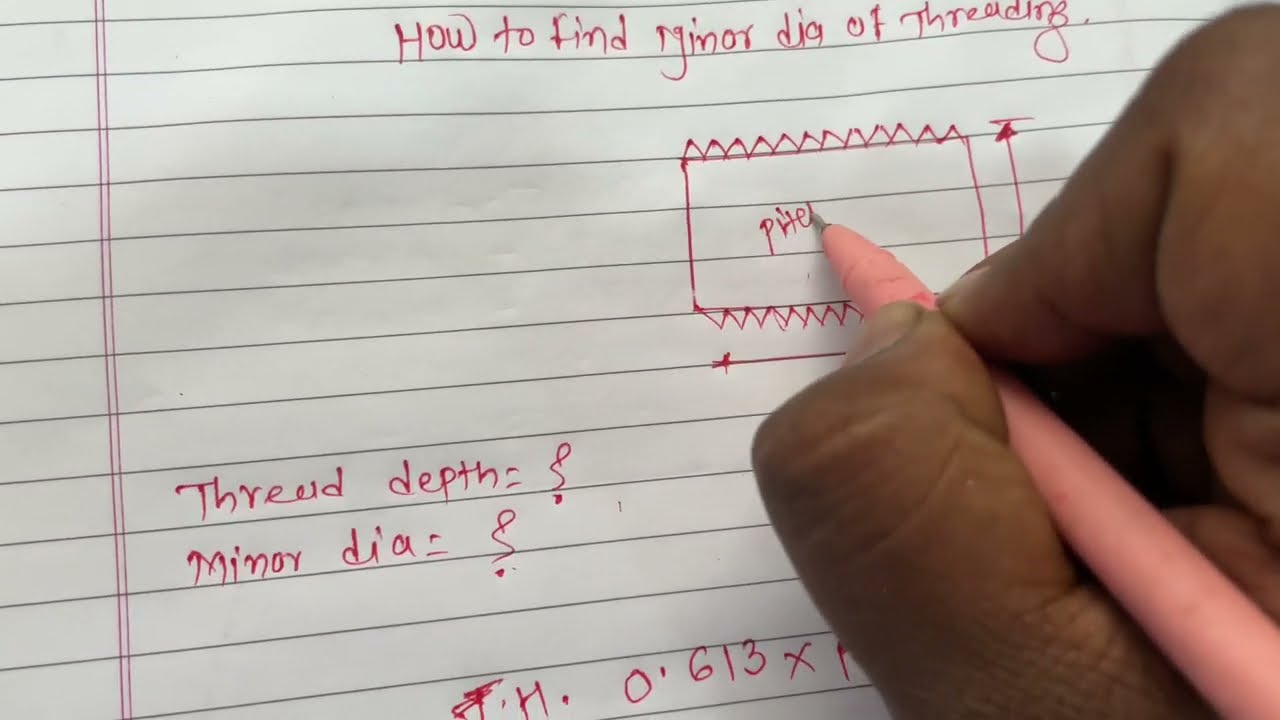 How to find Minor dia of Threading.
pite
Thread depth= ?
Minor dia= ?
T.H. 0.613 ×